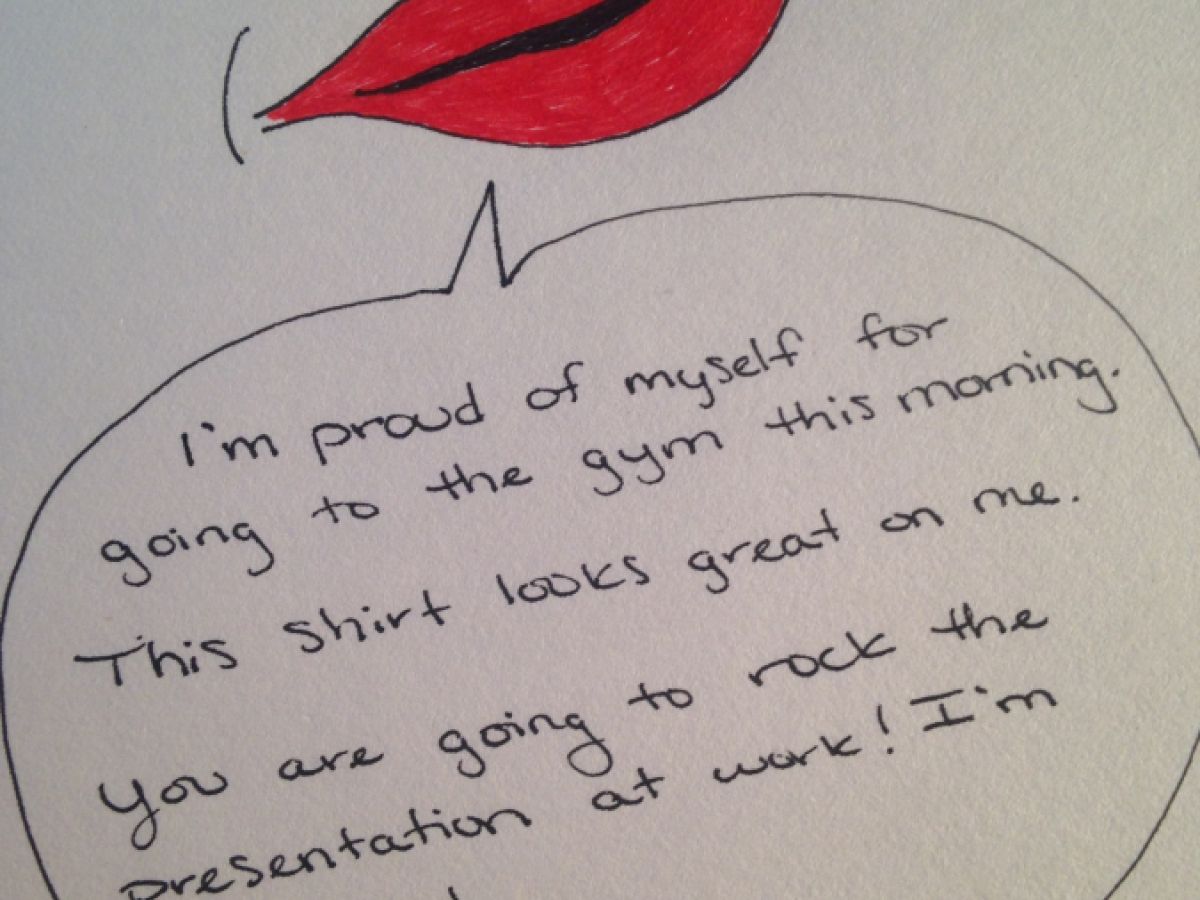 I'm proud of myself for
going to the gym this morning.
This shirt looks great on me.
You are going to rock the
presentation at work! I'm